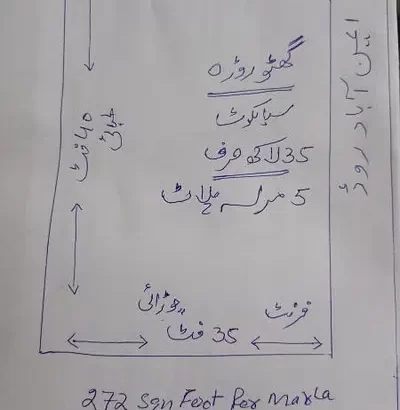 گھٹوروڑہ
سیالکوٹ
35 لاکھ صرف
5 مرلہ پلاٹ
ایمن آباد روڈ
لمبائی
40 فٹ
فرنٹ
چوڑائی
35 فٹ
272 Sqn Foot Per Marla